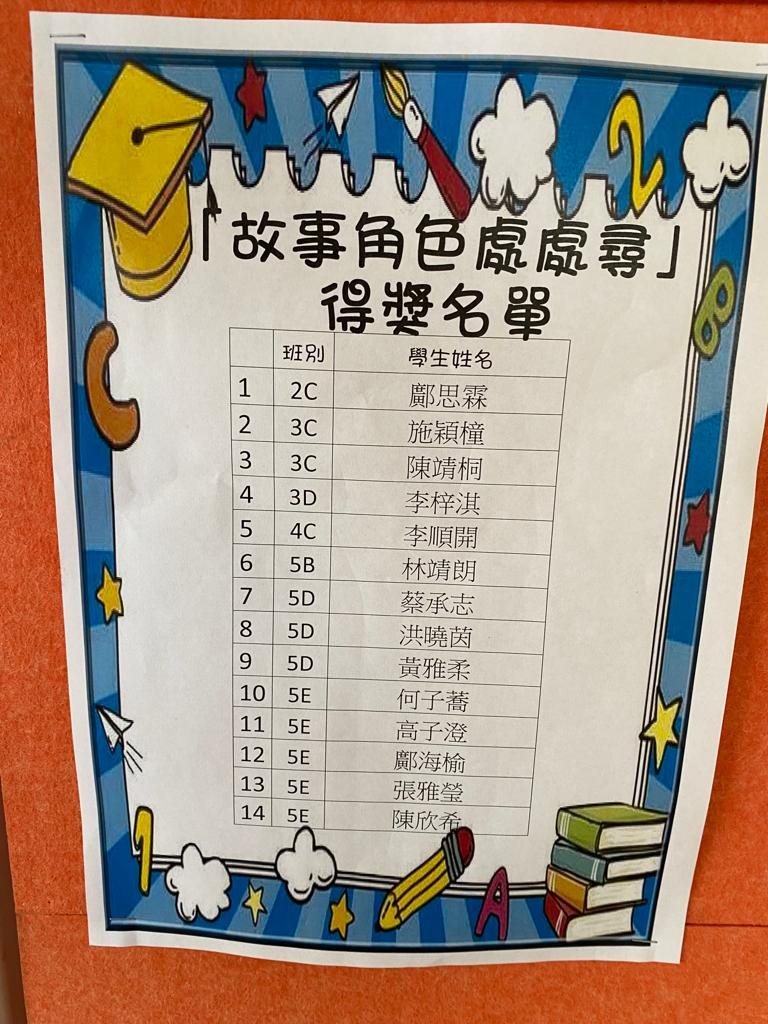 「故事角色處處尋」
得獎名單
班別 學生姓名
1 2C 鄺思霖
2 3C 施穎橦
3 3C 陳靖桐
4 3D 李梓淇
5 4C 李順開
6 5B 林靖朗
7 5D 蔡承志
8 5D 洪曉茵
9 5D 黃雅柔
10 5E 何子蕎
11 5E 高子澄
12 5E 鄺海榆
13 5E 張雅瑩
14 5E 陳欣希
2
B
C
1
A